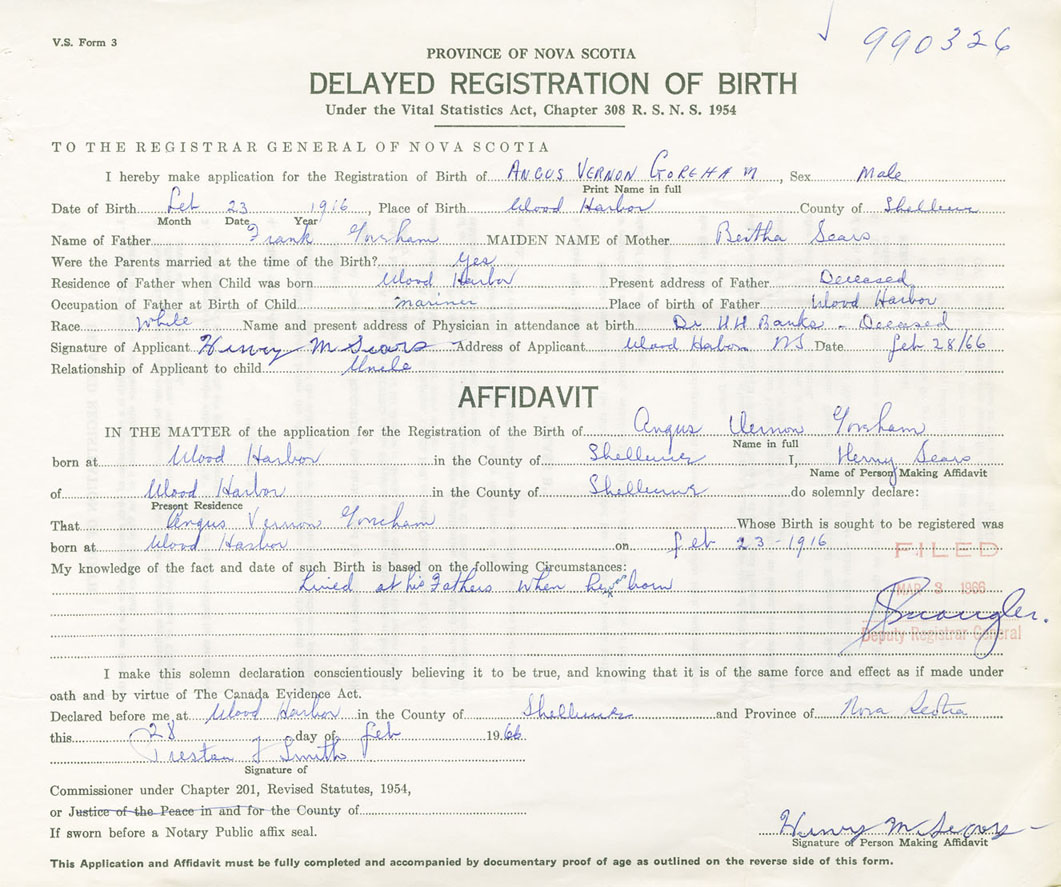 V.S. Form 3
990326
PROVINCE OF NOVA SCOTIA
DELAYED REGISTRATION OF BIRTH
Under the Vital Statistics Act, Chapter 308 R. S. N. S. 1954
TO THE REGISTRAR GENERAL OF NOVA SCOTIA
I hereby make application for the Registration of Birth of ANGUS VERNON GOREHAM, Sex Male
Print Name in full
Date of Birth Feb 23 1916, Place of Birth Wood Harbor County of Shelburne
Month Date Year
Name of Father Frank Goreham MAIDEN NAME of Mother Bertha Sears
Were the Parents married at the time of the Birth? Yes
Residence of Father when Child was born Wood Harbor Present address of Father Deceased
Occupation of Father at Birth of Child mariner Place of birth of Father Wood Harbor
Race White Name and present address of Physician in attendance at birth Dr HH Banks - Deceased
Signature of Applicant Henry M Sears Address of Applicant Wood Harbor NS Date Feb 28/66
Relationship of Applicant to child Uncle
AFFIDAVIT
IN THE MATTER of the application for the Registration of the Birth of Angus Vernon Goreham
Name in full
born at Wood Harbor in the County of Shelburne I, Henry Sears
Name of Person Making Affidavit
of Wood Harbor in the County of Shelburne do solemnly declare:
Present Residence
That Angus Vernon Goreham Whose Birth is sought to be registered was
born at Wood Harbor on Feb 23-1916
FILED
My knowledge of the fact and date of such Birth is based on the following Circumstances:
Lived at his Fathers when he was born
MAR 3 1966
Deputy Registrar General
I make this solemn declaration conscientiously believing it to be true, and knowing that it is of the same force and effect as if made under
oath and by virtue of The Canada Evidence Act.
Declared before me at Wood Harbor in the County of Shelburne and Province of Nova Scotia
this 28 day of Feb 1966
Smith
Signature of
Commissioner under Chapter 201, Revised Statutes, 1954,
or Justice of the Peace in and for the County of
If sworn before a Notary Public affix seal.
Henry M Sears
Signature of Person Making Affidavit
This Application and Affidavit must be fully completed and accompanied by documentary proof of age as outlined on the reverse side of this form.